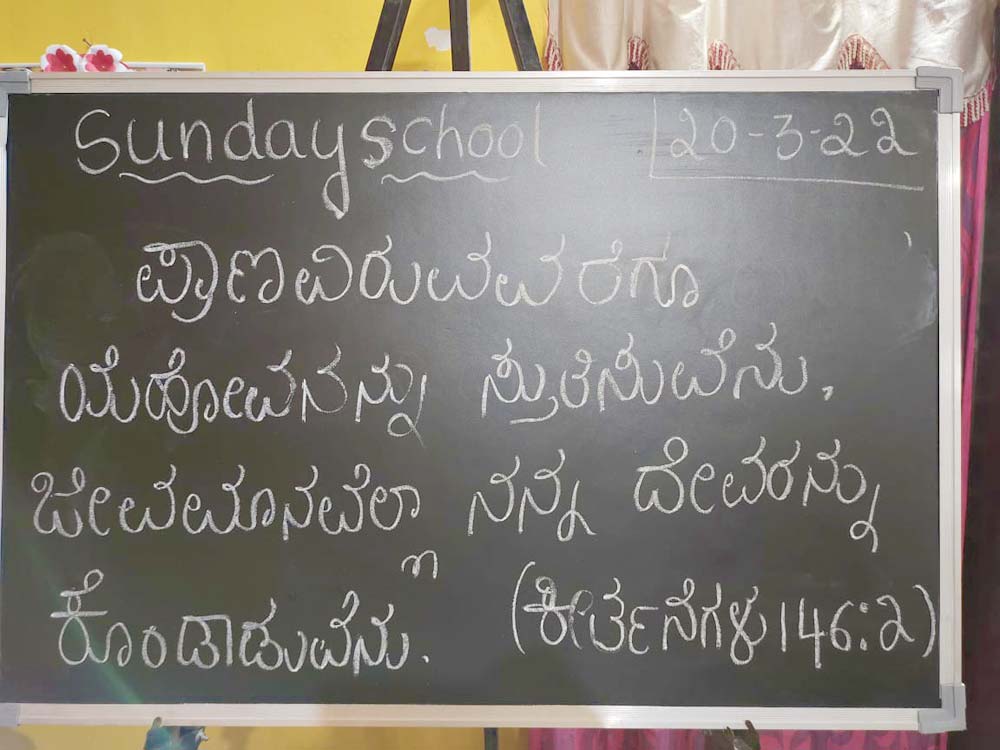 Sunday school 20-3-22
ಪ್ರಾಣವಿರುವವರೆಗೂ
ಯೆಹೋವನನ್ನು ಸ್ತುತಿಸುವೆನು,
ಜೀವಮಾನವೆಲ್ಲಾ ನನ್ನ ದೇವರನ್ನು
ಕೊಂಡಾಡುವೆನು. (ಕೀರ್ತನೆಗಳು 146:2)